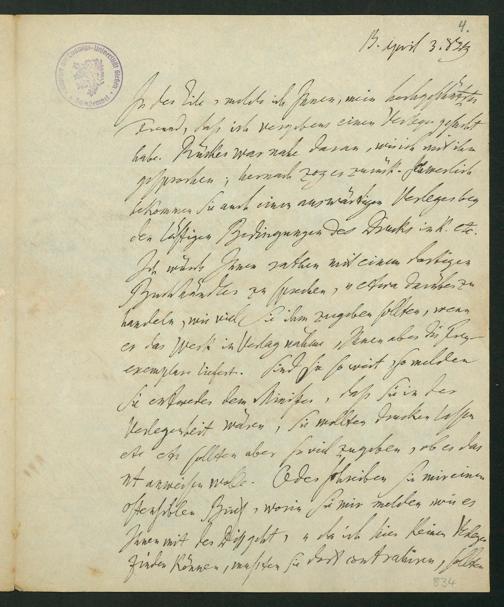 4.
B. April 3. 829
In der Eile, melde ich Ihnen, mein hochgeschätzter
Freund, daß ich vergebens einen Verleger gesucht
habe. Rücker war nahe daran, wie ich mit ihm
gesprochen; hernach zog er zurück. Schwerlich
bekommen Sie auch einen auswärtigen Verleger bey
den läßtigen Bedingungen des Drucks in K. etc.
Ich würde Ihnen rathen mit einem dortigen
Buchhändler zu sprechen, u etwa darüber zu
handeln, wie viel Sie ihm zugeben sollten, wenn
er das Werk in Verlag nähme, Ihnen aber die Frey-
exemplare liefert. Sind Sie so weit, so melden
Sie entweder dem Minister, daß Sie in der
Verlegenheit wären, Sie wollten drucken lassen
etc etc sollten aber so viel zugeben, ob er das
nt anweisen wolle. Oder schreiben Sie mir einen
ostensiblen Brief, worin Sie mir melden wie es
Ihnen mit der geht, u da ich hier keinen Verleger
finden können, müßten Sie dort contrahiren, sollten
834